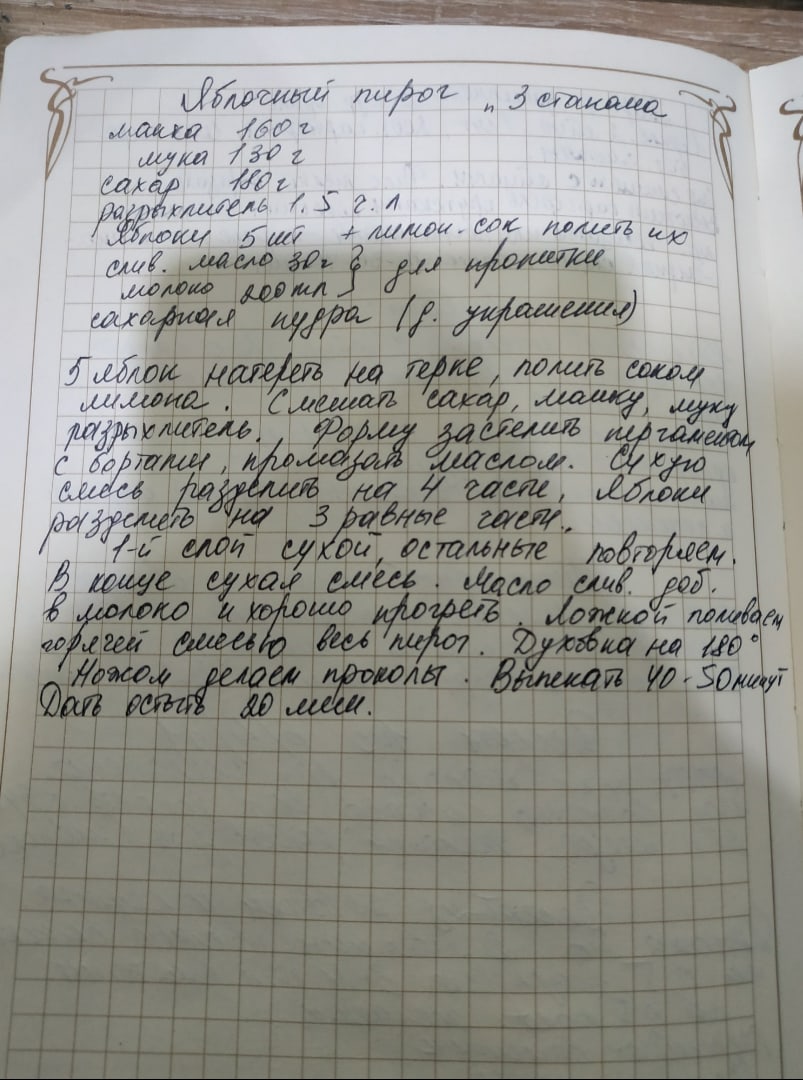 Яблочный пирог „ 3 стакана
манка 160 г
мука 130 г
сахар 180 г
разрыхлитель 1.5 ч. л
Яблоки 5 шт + лимон. сок полить их
слив. масло 30г } для пропитки
молоко 200 мл }
сахарная пудра (д. украшения)
5 яблок натереть на терке, полить соком
лимона. Смешать сахар, манку, муку
разрыхлитель. Форму застелить пергаментом
с бортами, промазать маслом. Сухую
смесь разделить на 4 части, яблоки
разделить на 3 равные части.
1-й слой сухой, остальные повторяем.
В конце сухая смесь. Масло слив. доб.
в молоко и хорошо прогреть. Ложкой поливаем
горячей смесью весь пирог. Духовка на 180°
Ножом делаем проколы. Выпекать 40-50 минут
Дать остыть 20 мин.